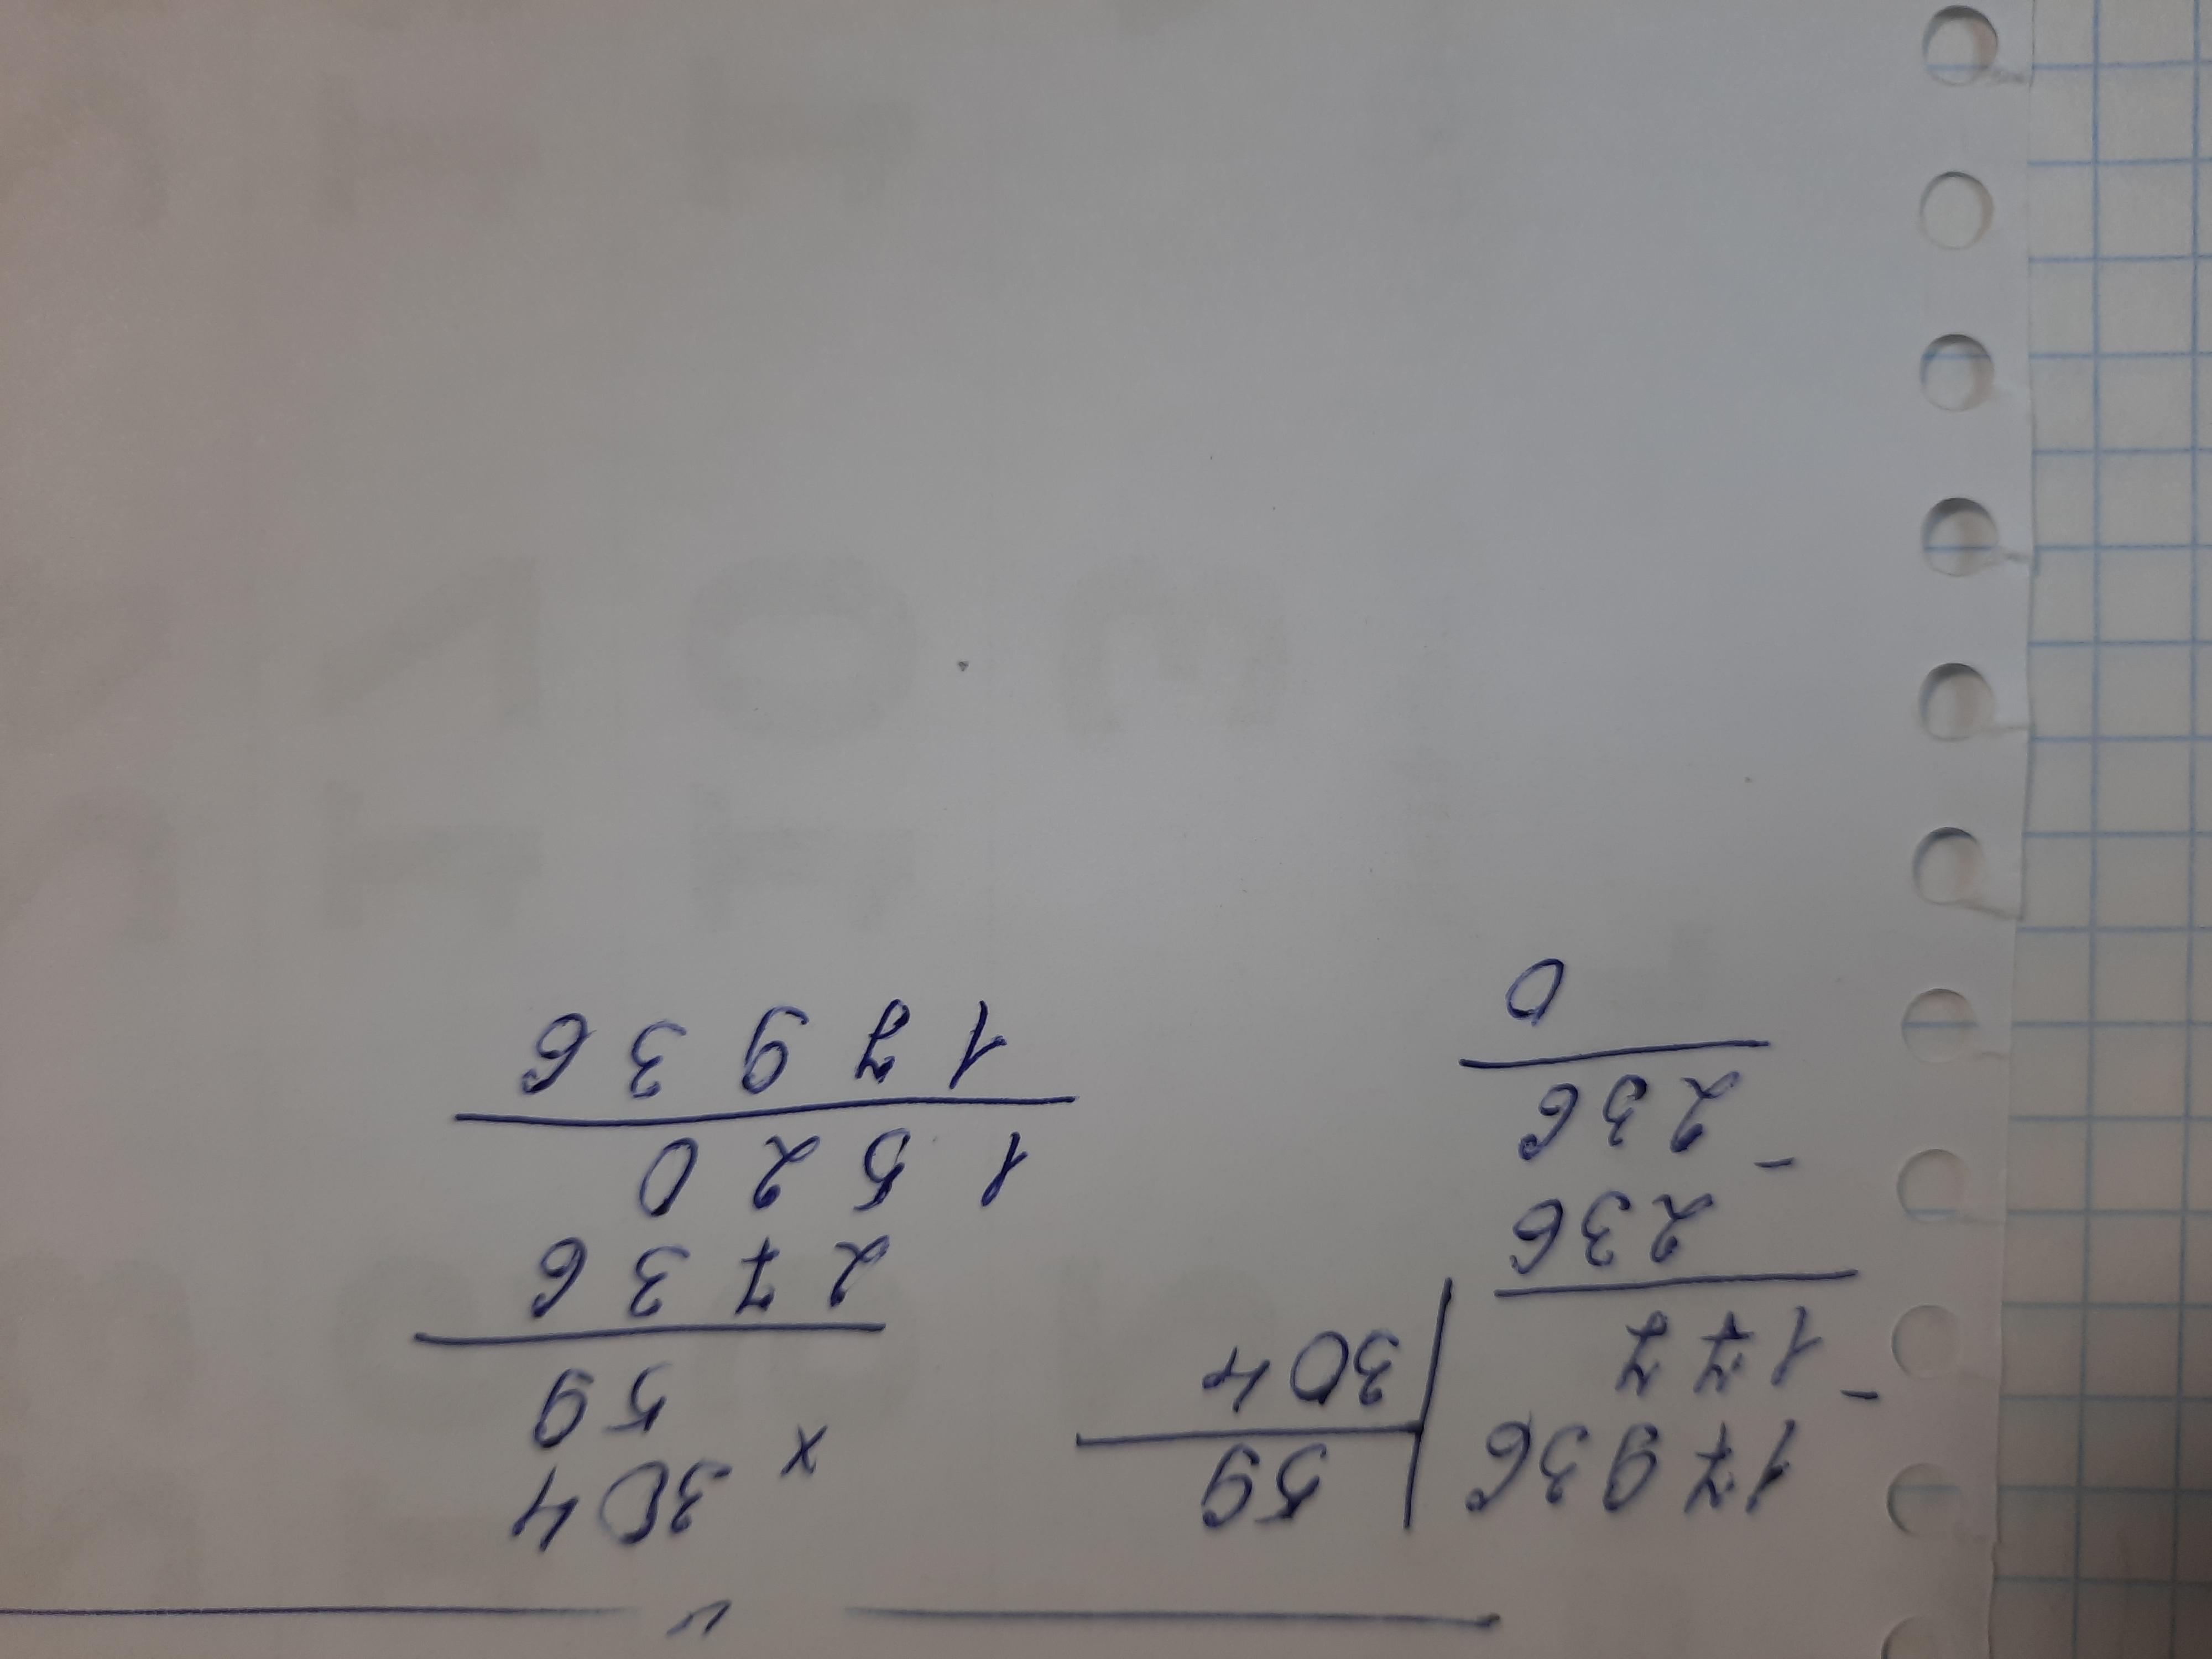 17936 | 59
- 177 | 304
236
- 236
0
304
x 59
2736
1520
17936